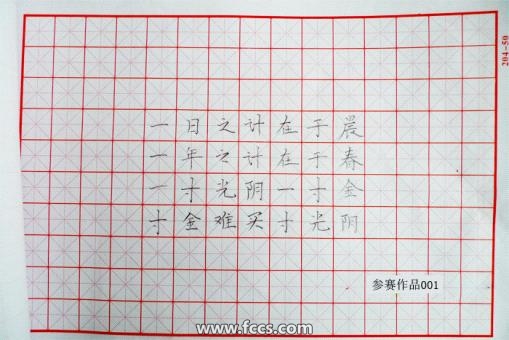 204-50
一日之计在于晨
一年之计在于春
一寸光阴一寸金
寸金难买寸光阴
参赛作品001
www.fccs.com